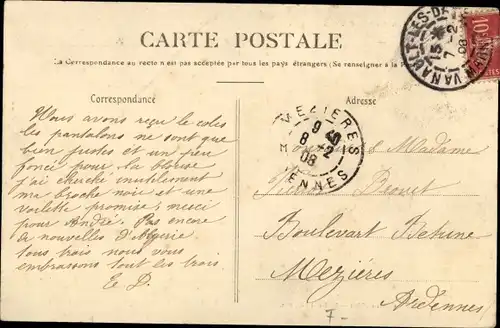 CARTE POSTALE
La Correspondance au recto n'est pas acceptée par tous les pays étrangers (Se renseigner à la P
Correspondance
Adresse
Vous avons reçu le colis
les pantalons ne sont que
bien justes et un peu
foncé pour la blouse
j'ai cherché inutilement
ma broche noire et une
voilette promise; merci
pour André. Pas encore
de nouvelles d'Algérie
tous trois nous vous
embrassons tous les trois
E D.
Monsieur Madame
Drouet
Boulevart Bethune
Mezières
Ardennes
VANAULT-LES-D
7 -2
08
10
MEZIERES
9 40
8 -2
08
ENNES